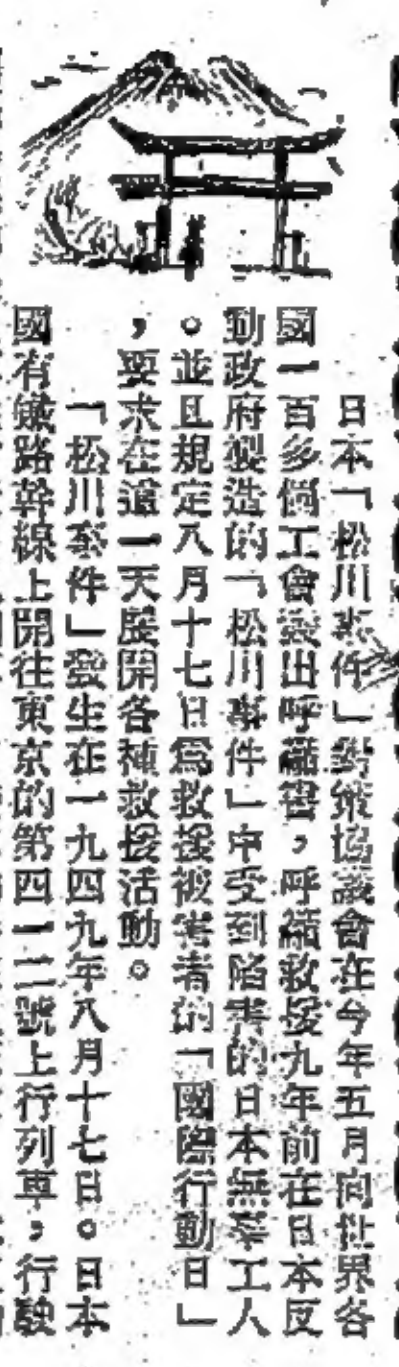 日本「松川事件」對策協議會在今年五月向世界各
國一百多個工會發出呼籲書，呼籲救援九年前在日本反
動政府製造的「松川事件」中受到陷害的日本無辜工人
。並且規定八月十七日爲救援被害者的「國際行動日」
，要求在這一天展開各種救援活動。
「松川事件」發生在一九四九年八月十七日。日本
國有鐵路幹線上開往東京的第四一二號上行列車，行駛